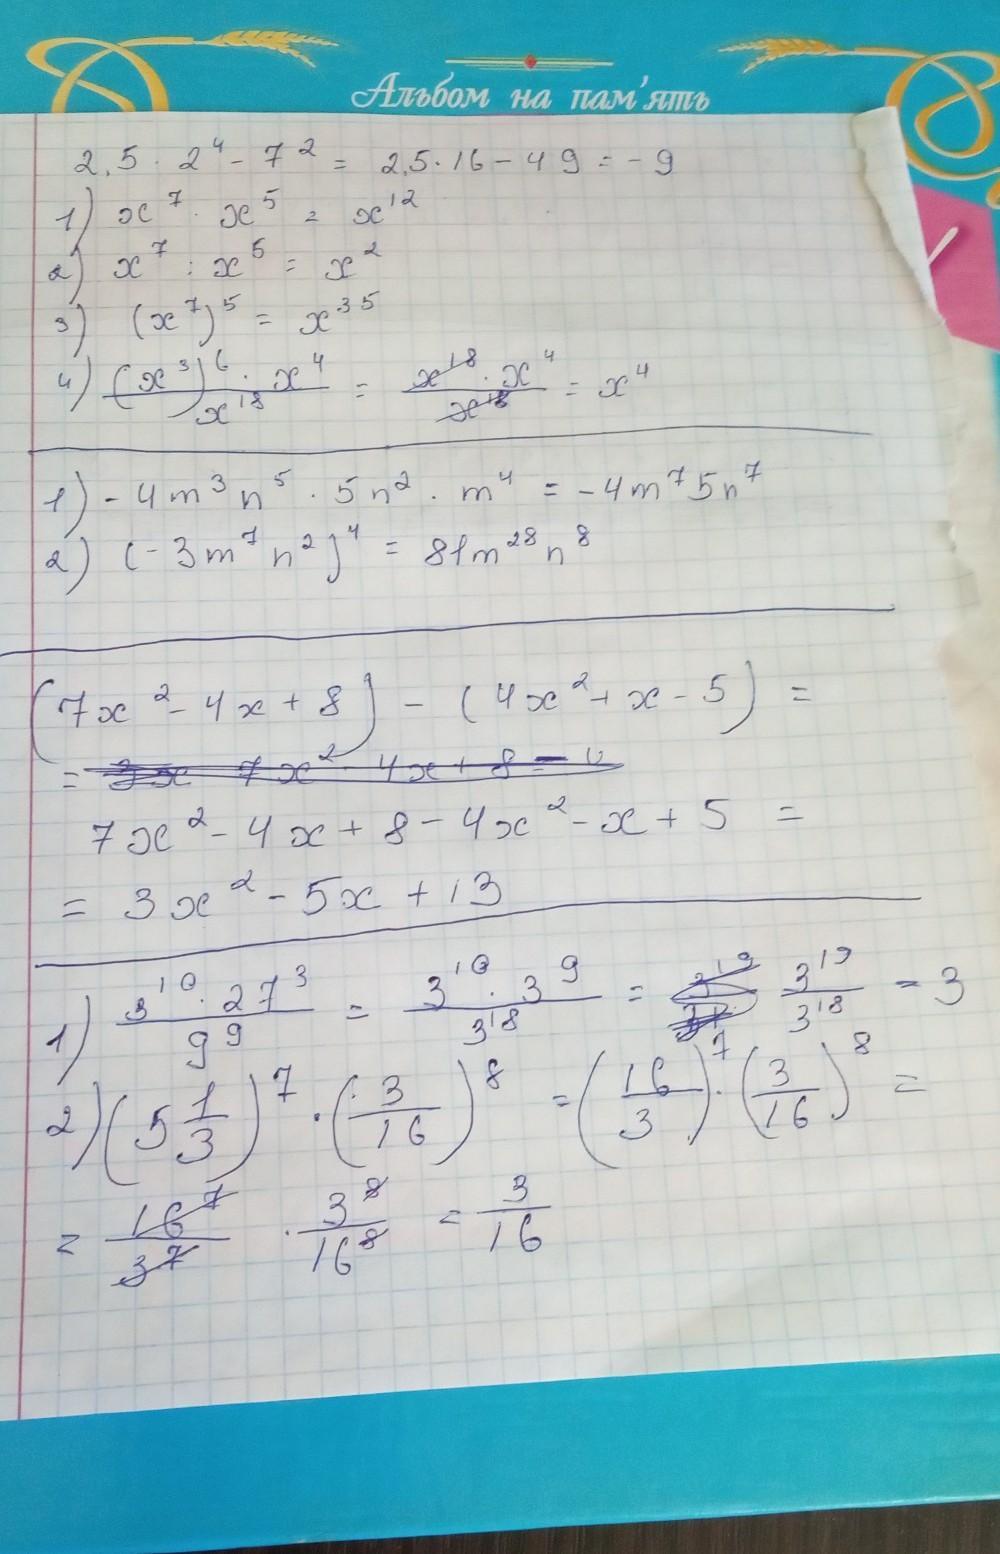 Альбом на пам'ять
2,5 · 2⁴ - 7² = 2,5 · 16 - 49 = - 9
1) x⁷ · x⁵ = x¹²
2) x⁷ : x⁵ = x²
3) (x⁷)⁵ = x³⁵
4) (x³)⁶ · x⁴ / x¹⁸ = x¹⁸ · x⁴ / x¹⁸ = x⁴
1) - 4m³n⁵ · 5n² · m⁴ = -4m⁷5n⁷
2) (-3m⁷n²)⁴ = 81m²⁸n⁸
(7x² - 4x + 8) - (4x² + x - 5) =
= 7x² - 4x + 8 -
7x² - 4x + 8 - 4x² - x + 5 =
= 3x² - 5x + 13
1) 3¹⁰ · 27³ / 9⁹ = 3¹⁰ · 3⁹ / 3¹⁸ = 3¹⁹ / 3¹⁸ = 3
2) (5 1/3)⁷ · (3/16)⁸ = (16/3)⁷ · (3/16)⁸ =
= 16⁷/3⁷ · 3⁸/16⁸ = 3/16